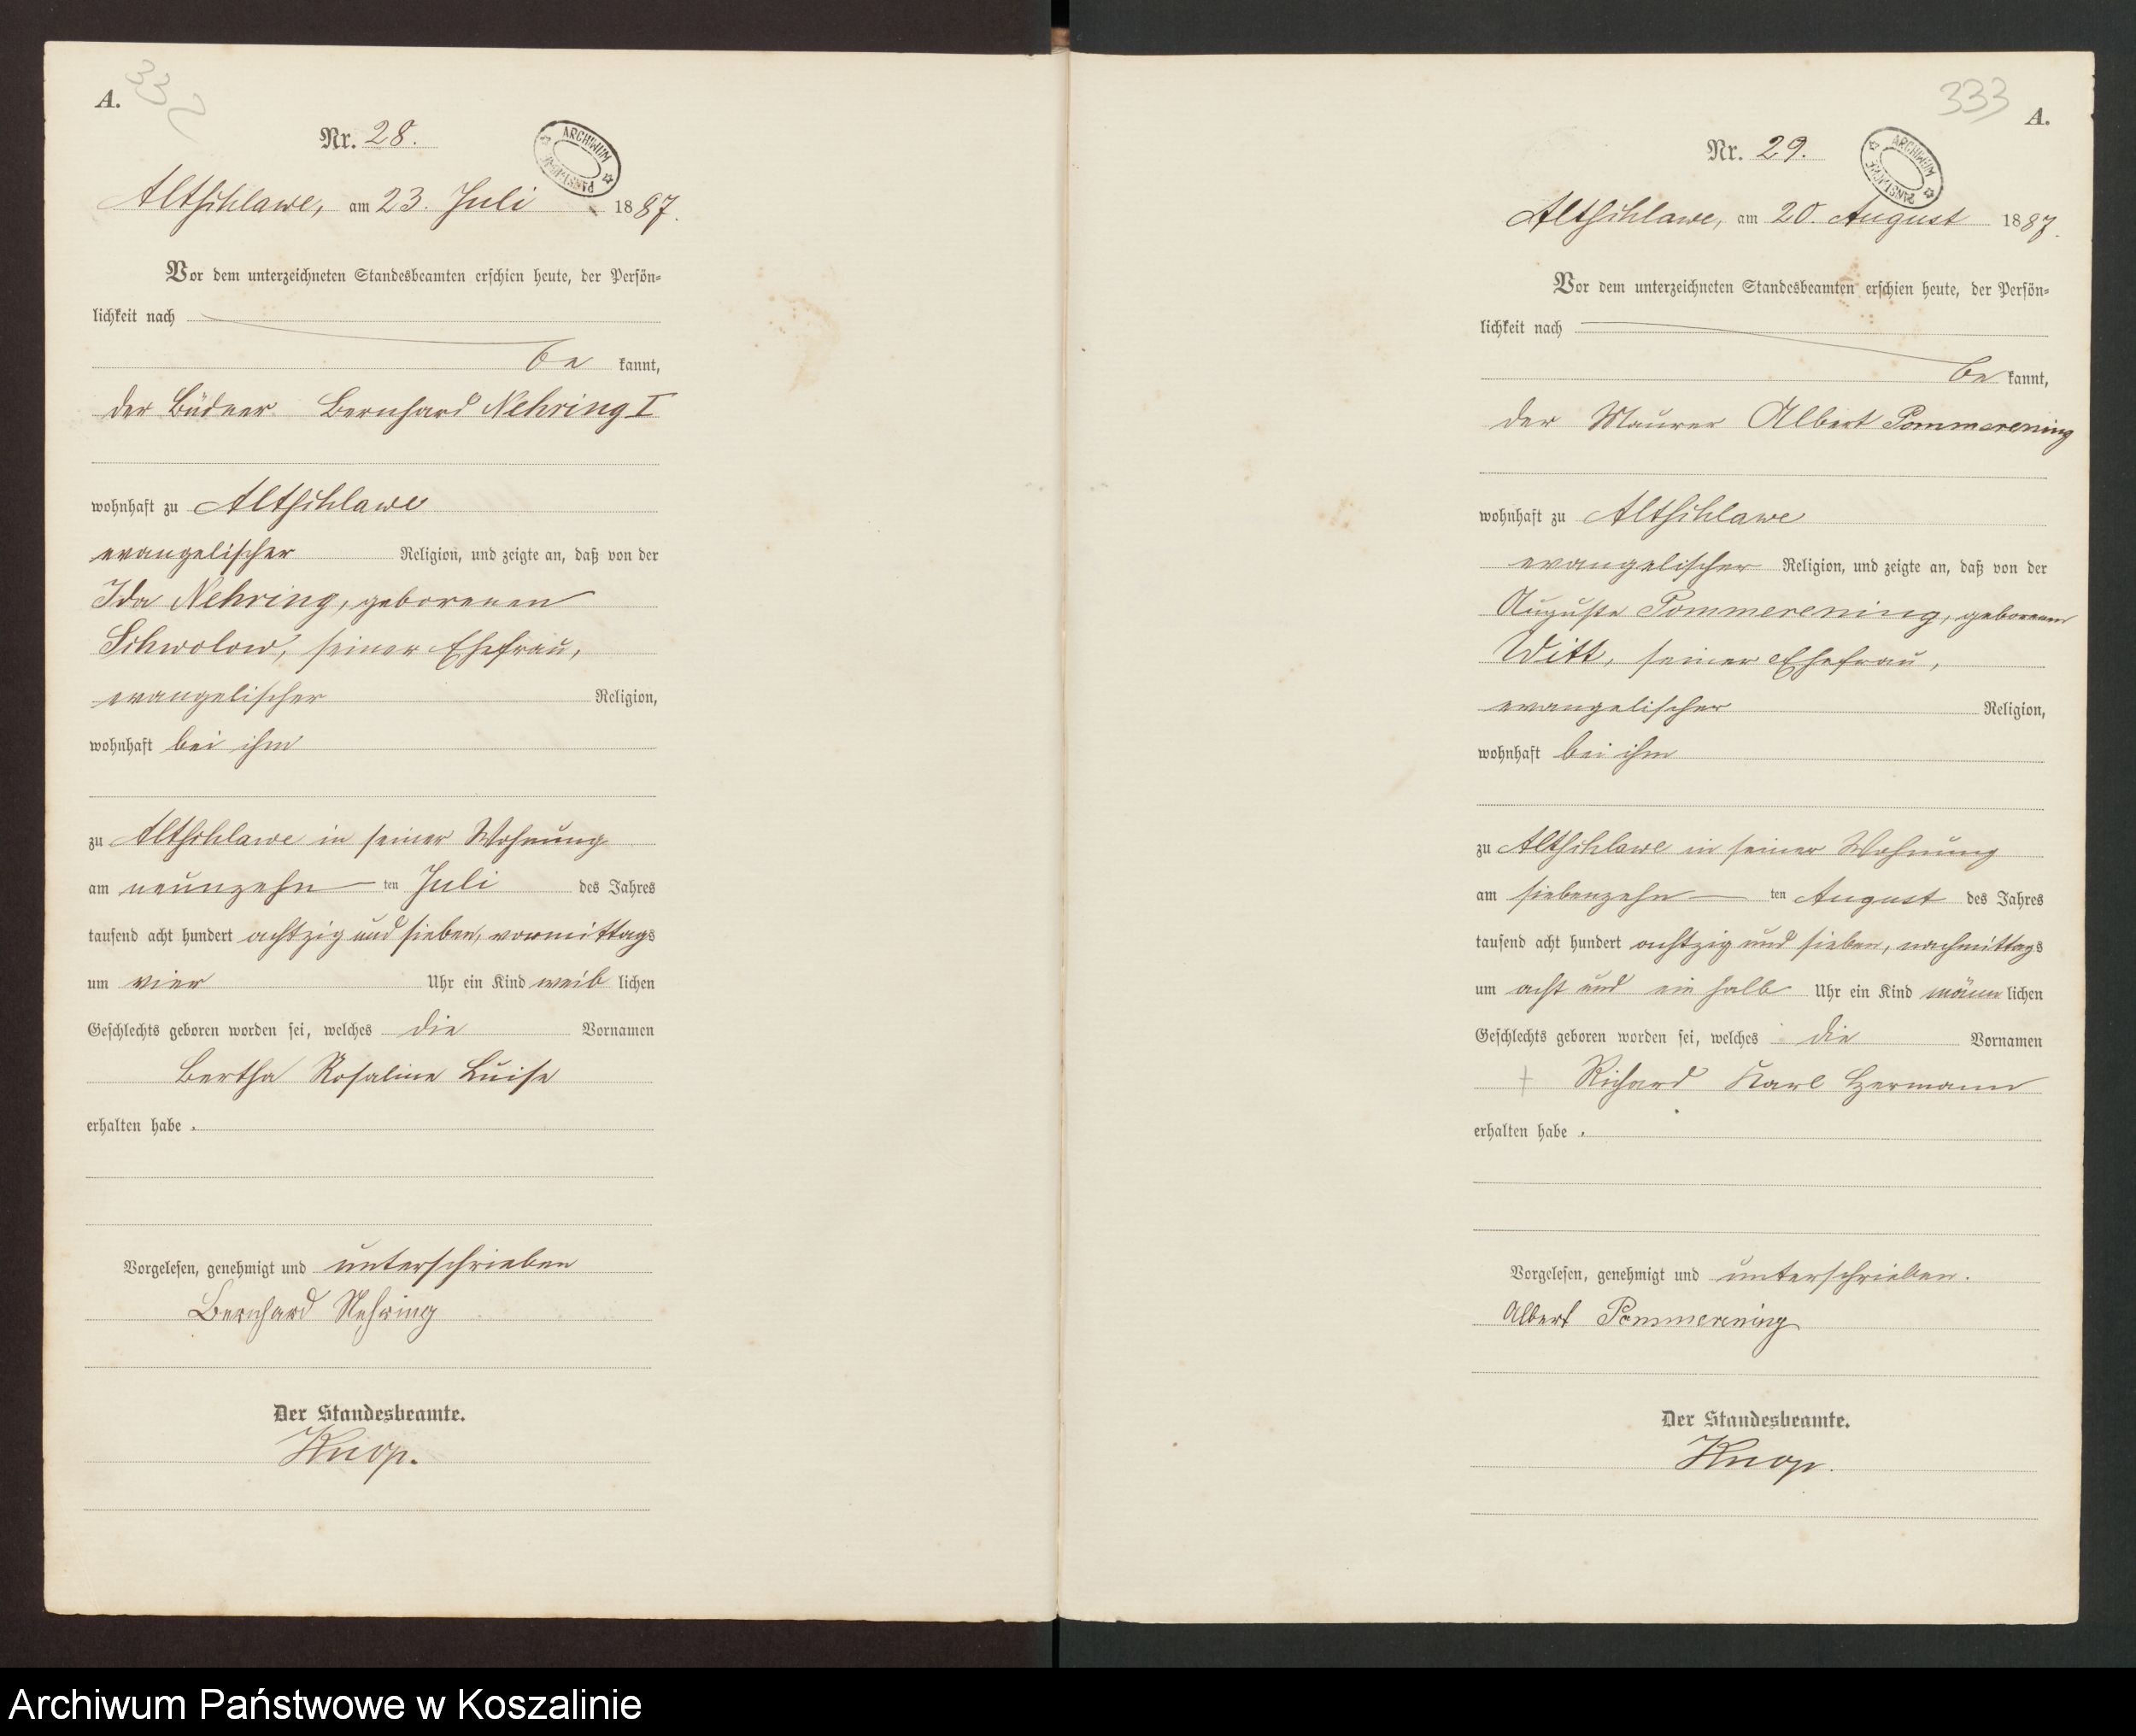 A.
332
Nr. 28.
ARCHIWUM PAŃSTWOWE
Altschlawe, am 23. Juli 1887.
Vor dem unterzeichneten Standesbeamten erschien heute, der Persön-
lichkeit nach
be kannt,
der Büdner Bernhard Nehring I
wohnhaft zu Altschlawe
evangelischer Religion, und zeigte an, daß von der
Ida Nehring, geborenen
Schwolow, seiner Ehefrau,
evangelischer Religion,
wohnhaft bei ihm
zu Altschlawe in seiner Wohnung
am neunzehn ten Juli des Jahres
tausend acht hundert achtzig und sieben, vormittags
um vier Uhr ein Kind weib lichen
Geschlechts geboren worden sei, welches die Vornamen
Bertha Rosaline Luise
erhalten habe .
Vorgelesen, genehmigt und unterschrieben
Bernhard Nehring
Der Standesbeamte.
Knop.
333
A.
Nr. 29.
ARCHIWUM PAŃSTWOWE
Altschlawe, am 20. August 1887.
Vor dem unterzeichneten Standesbeamten erschien heute, der Persön-
lichkeit nach
be kannt,
der Maurer Albert Pommerening
wohnhaft zu Altschlawe
evangelischer Religion, und zeigte an, daß von der
Auguste Pommerening, geborenen
Witt, seiner Ehefrau,
evangelischer Religion,
wohnhaft bei ihm
zu Altschlawe in seiner Wohnung
am siebenzehn ten August des Jahres
tausend acht hundert achtzig und sieben, nachmittags
um acht und ein halb Uhr ein Kind männ lichen
Geschlechts geboren worden sei, welches die Vornamen
† Richard Karl Hermann
erhalten habe .
Vorgelesen, genehmigt und unterschrieben.
Albert Pommerening
Der Standesbeamte.
Knop.
Archiwum Państwowe w Koszalinie